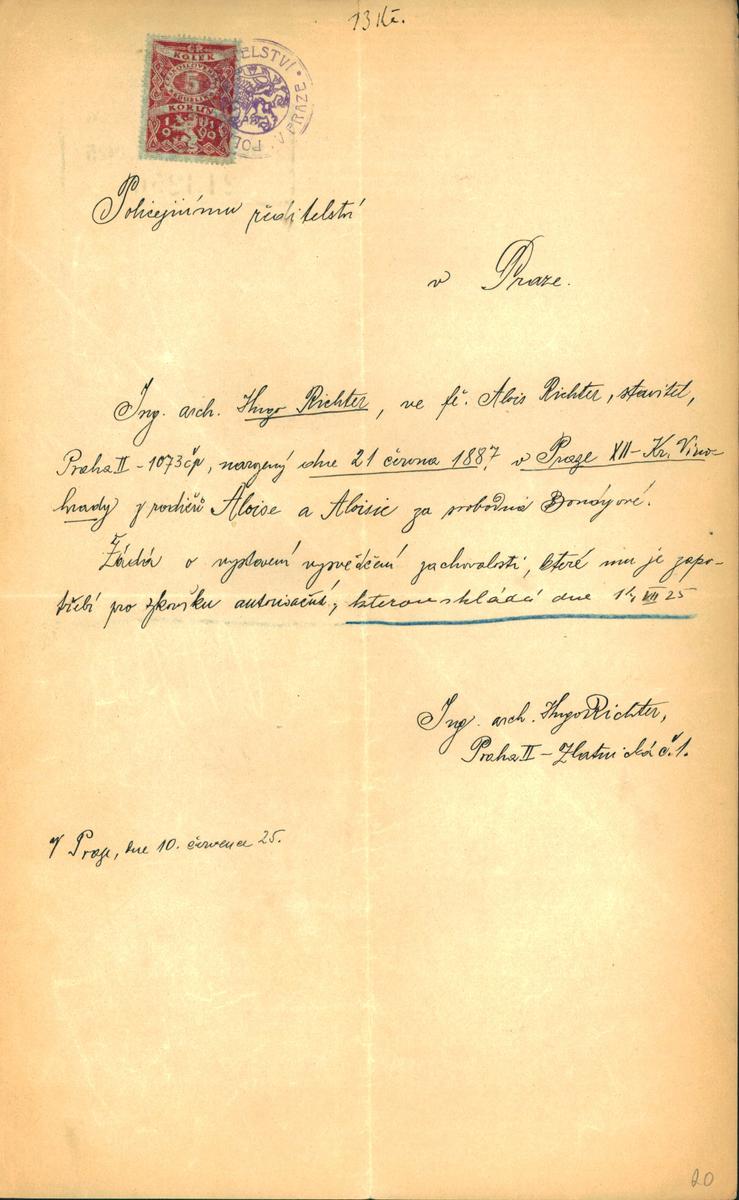 13 Kč.
ČR
KOLEK
5
KORUN
1919
POL ITELSTVÍ • V PRAZE •
Policejnímu ředitelství
v Praze.
Ing. arch. Hugo Richter, ve fě. Alois Richter, stavitel,
Praha II - 1073 čp, narozený dne 21 června 1887 v Praze XII - Kr. Vino-
hrady z rodičů Aloise a Aloisie za svobodna
Žádá o vystavení vysvědčení zachovalosti, které mu je zapo-
třebí pro zkoušku autorisační, kterou skládá dne VII 25
Ing. arch. Hugo Richter,
Praha II - Zlatnická č. 1.
V Praze, dne 10. července 25.
20